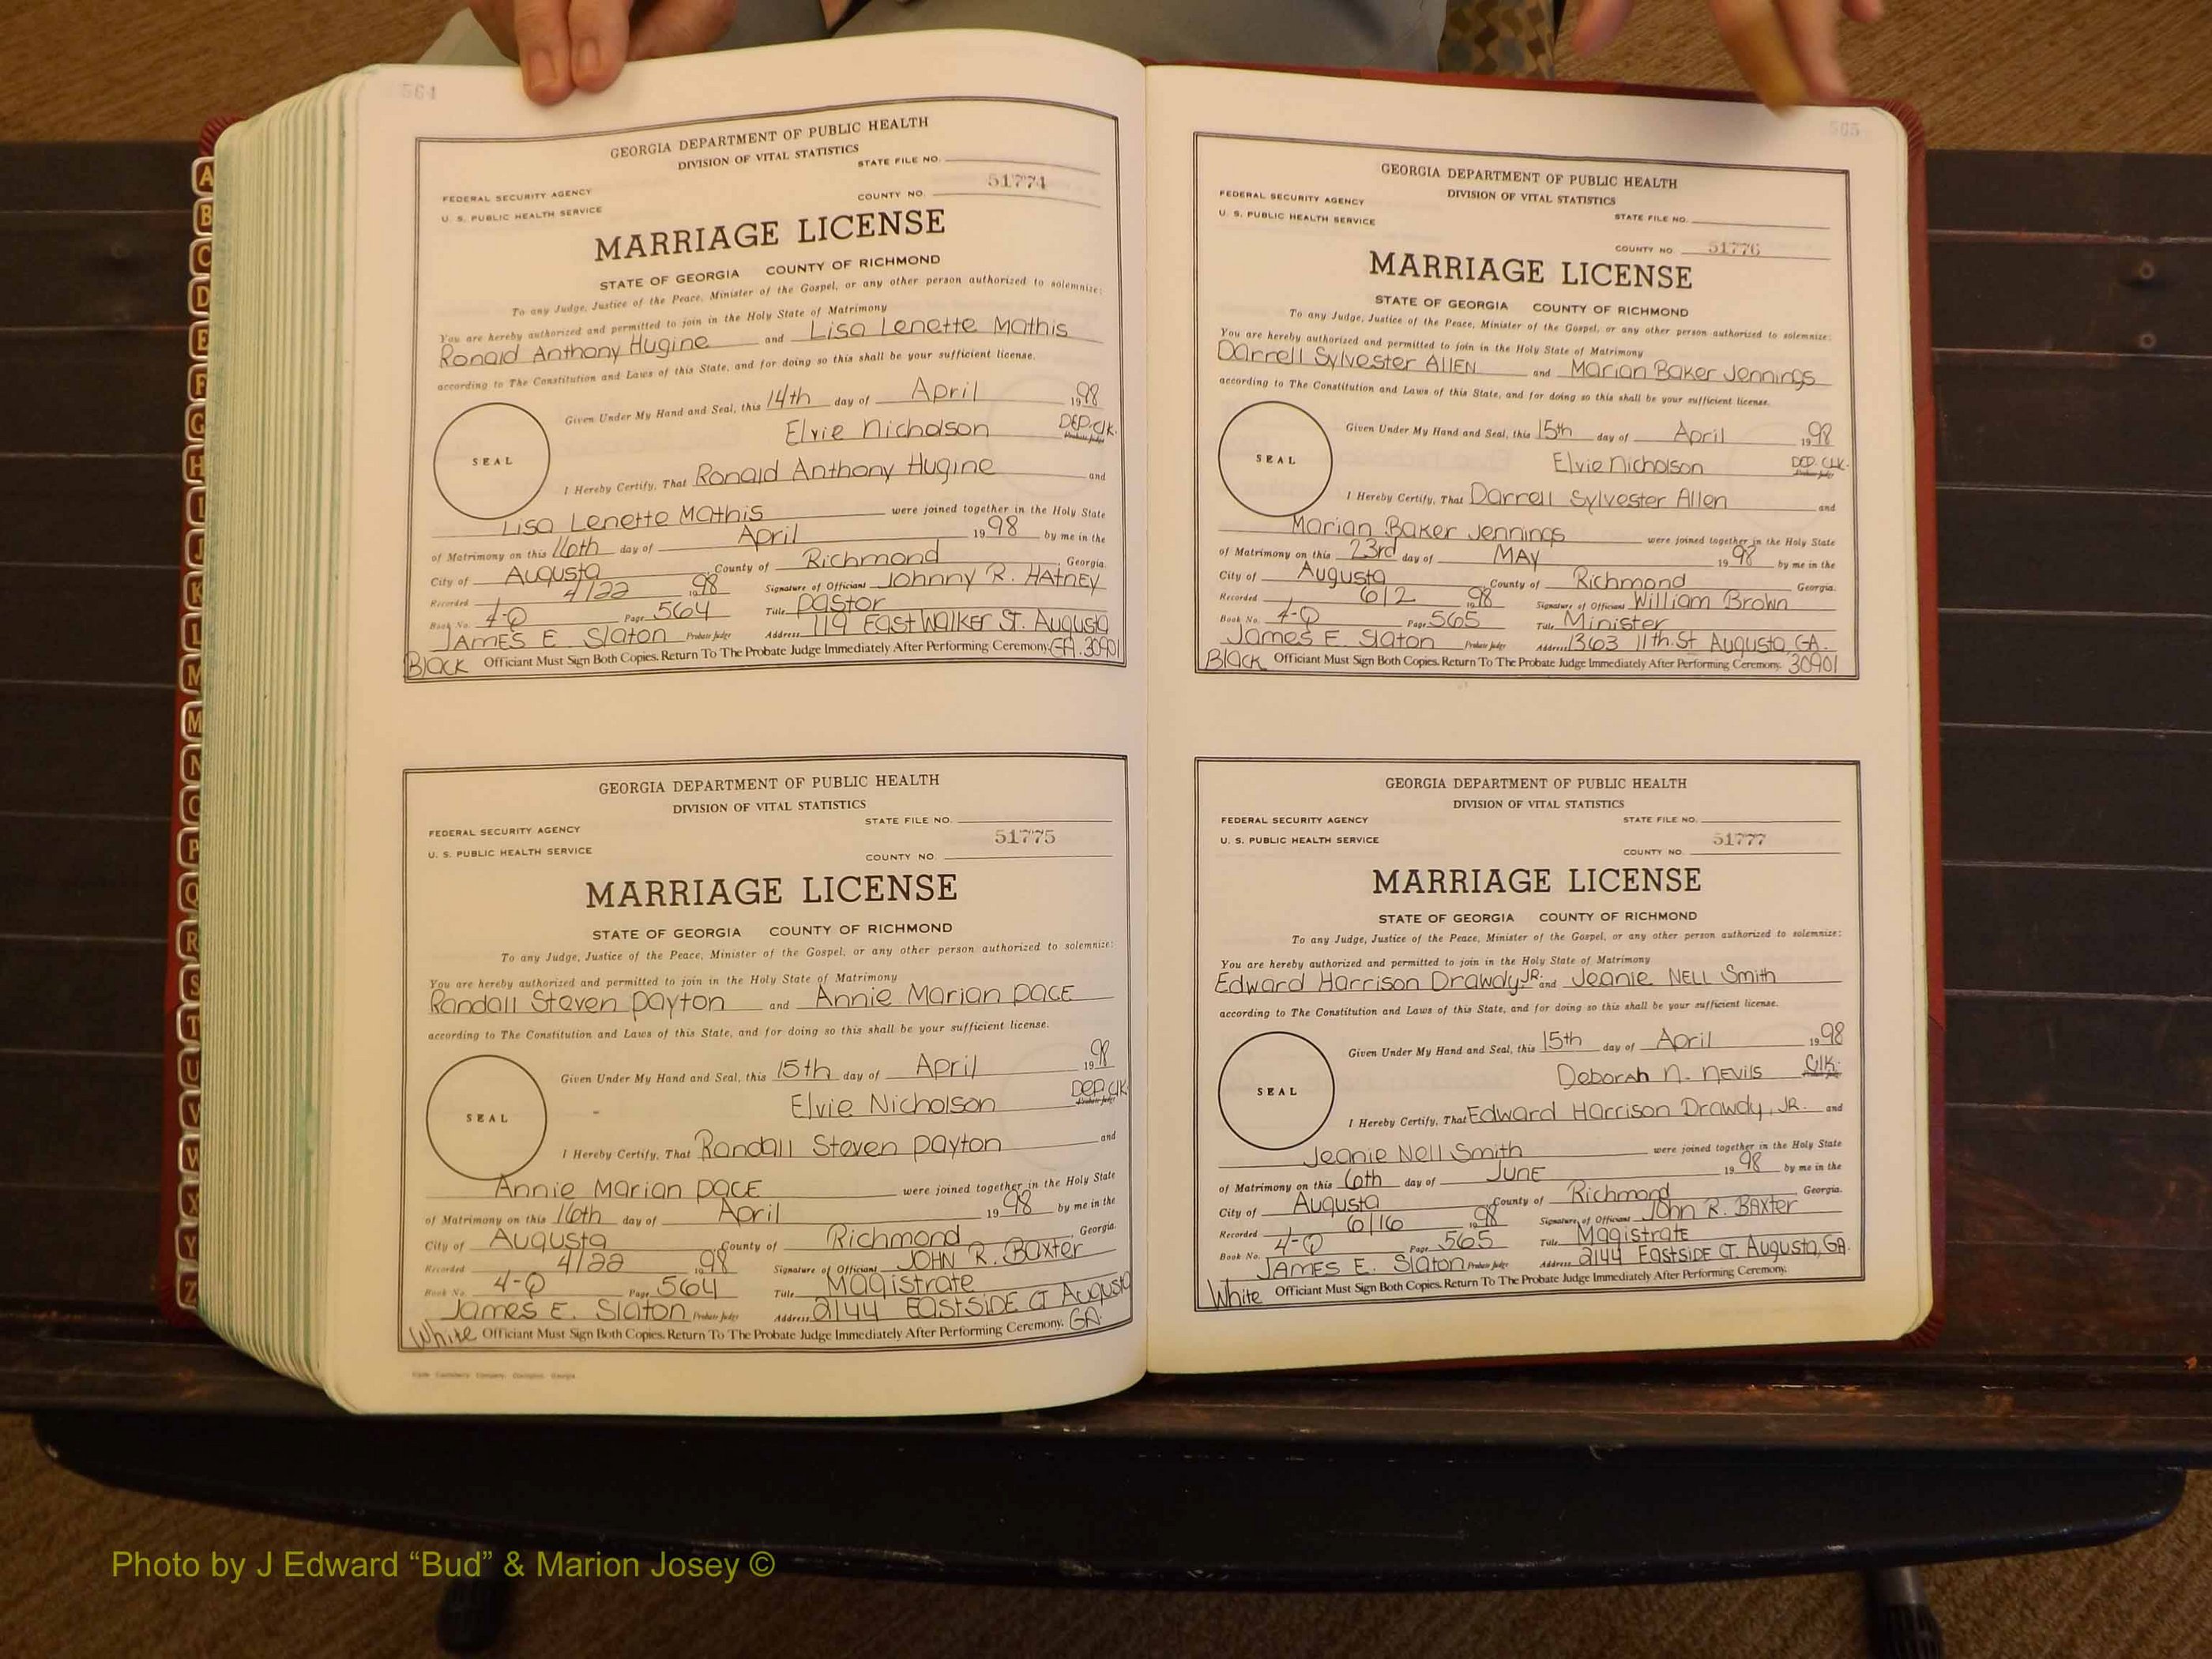 564
GEORGIA DEPARTMENT OF PUBLIC HEALTH
DIVISION OF VITAL STATISTICS
STATE FILE NO.
FEDERAL SECURITY AGENCY
U. S. PUBLIC HEALTH SERVICE
COUNTY NO. 51774
MARRIAGE LICENSE
STATE OF GEORGIA COUNTY OF RICHMOND
To any Judge, Justice of the Peace, Minister of the Gospel, or any other person authorized to solemnize:
You are hereby authorized and permitted to join in the Holy State of Matrimony
Ronald Anthony Hugine and Lisa Lenette Mathis
according to The Constitution and Laws of this State, and for doing so this shall be your sufficient license.
Given Under My Hand and Seal, this 14th day of April 1998
Elvie Nicholson DEP. Clk. Probate Judge
SEAL
I Hereby Certify, That Ronald Anthony Hugine and
Lisa Lenette Mathis were joined together in the Holy State
of Matrimony on this 16th day of April 1998 by me in the
City of Augusta County of Richmond Georgia.
Recorded 4/22 1998 Signature of Officiant Johnny R. Hatney
Book No. 4-Q Page 564 Title Pastor
James E. Slaton Probate Judge Address 119 East Walker St. Augusta
Black Officiant Must Sign Both Copies. Return To The Probate Judge Immediately After Performing Ceremony. GA. 30901
GEORGIA DEPARTMENT OF PUBLIC HEALTH
DIVISION OF VITAL STATISTICS
STATE FILE NO.
FEDERAL SECURITY AGENCY
U. S. PUBLIC HEALTH SERVICE
COUNTY NO. 51775
MARRIAGE LICENSE
STATE OF GEORGIA COUNTY OF RICHMOND
To any Judge, Justice of the Peace, Minister of the Gospel, or any other person authorized to solemnize:
You are hereby authorized and permitted to join in the Holy State of Matrimony
Randall Steven Payton and Annie Marian PACE
according to The Constitution and Laws of this State, and for doing so this shall be your sufficient license.
Given Under My Hand and Seal, this 15th day of April 1998
Elvie Nicholson DEP. Clk. Probate Judge
SEAL
I Hereby Certify, That Randall Steven Payton and
Annie Marian PACE were joined together in the Holy State
of Matrimony on this 16th day of April 1998 by me in the
City of Augusta County of Richmond Georgia.
Recorded 4/22 1998 Signature of Officiant JOHN R. Baxter
Book No. 4-Q Page 564 Title Magistrate
James E. Slaton Probate Judge Address 2144 EastSIDE CT Augusta
White Officiant Must Sign Both Copies. Return To The Probate Judge Immediately After Performing Ceremony. GA.
565
GEORGIA DEPARTMENT OF PUBLIC HEALTH
DIVISION OF VITAL STATISTICS
FEDERAL SECURITY AGENCY
U. S. PUBLIC HEALTH SERVICE
STATE FILE NO.
COUNTY NO 51776
MARRIAGE LICENSE
STATE OF GEORGIA COUNTY OF RICHMOND
To any Judge, Justice of the Peace, Minister of the Gospel, or any other person authorized to solemnize:
You are hereby authorized and permitted to join in the Holy State of Matrimony
Darrell Sylvester AllEN and Marian Baker Jennings
according to the Constitution and Laws of this State, and for doing so this shall be your sufficient license.
Given Under My Hand and Seal, this 15th day of April 1998
Elvie Nicholson DEP. CLK. Probate Judge
SEAL
I Hereby Certify, That Darrell Sylvester Allen and
Marian Baker Jennings were joined together in the Holy State
of Matrimony on this 23rd day of MAY 1998 by me in the
City of Augusta County of Richmond Georgia.
Recorded 6/2 1998 Signature of Officiant William Brown
Book No. 4-Q Page 565 Title Minister
James E. Slaton Probate Judge Address 1363 11th St Augusta, GA.
Black Officiant Must Sign Both Copies. Return To The Probate Judge Immediately After Performing Ceremony. 30901
GEORGIA DEPARTMENT OF PUBLIC HEALTH
DIVISION OF VITAL STATISTICS
FEDERAL SECURITY AGENCY
STATE FILE NO.
U. S. PUBLIC HEALTH SERVICE
COUNTY NO. 51777
MARRIAGE LICENSE
STATE OF GEORGIA COUNTY OF RICHMOND
To any Judge, Justice of the Peace, Minister of the Gospel, or any other person authorized to solemnize:
You are hereby authorized and permitted to join in the Holy State of Matrimony
Edward Harrison Drawdy JR. and Jeanie NELL Smith
according to the Constitution and Laws of this State, and for doing so this shall be your sufficient license.
Given Under My Hand and Seal, this 15th day of April 1998
Deborah N. NEVILS Clk.
SEAL
I Hereby Certify, That Edward Harrison Drawdy, JR. and
Jeanie Nell Smith were joined together in the Holy State
of Matrimony on this 6th day of JUNE 1998 by me in the
City of Augusta County of Richmond Georgia.
Recorded 6/16 1998 Signature of Officiant John R. BAxter
Book No. 4-Q Page 565 Title Magistrate
JAMES E. Slaton Probate Judge Address 2144 EastSIDE CT. Augusta, GA.
White Officiant Must Sign Both Copies. Return To The Probate Judge Immediately After Performing Ceremony.
A
B
C
D
E
F
G
H
I
J
K
L
M
M
N
O
P
Q
R
S
T
U
V
W
X
Y
Z
Photo by J Edward “Bud” & Marion Josey ©